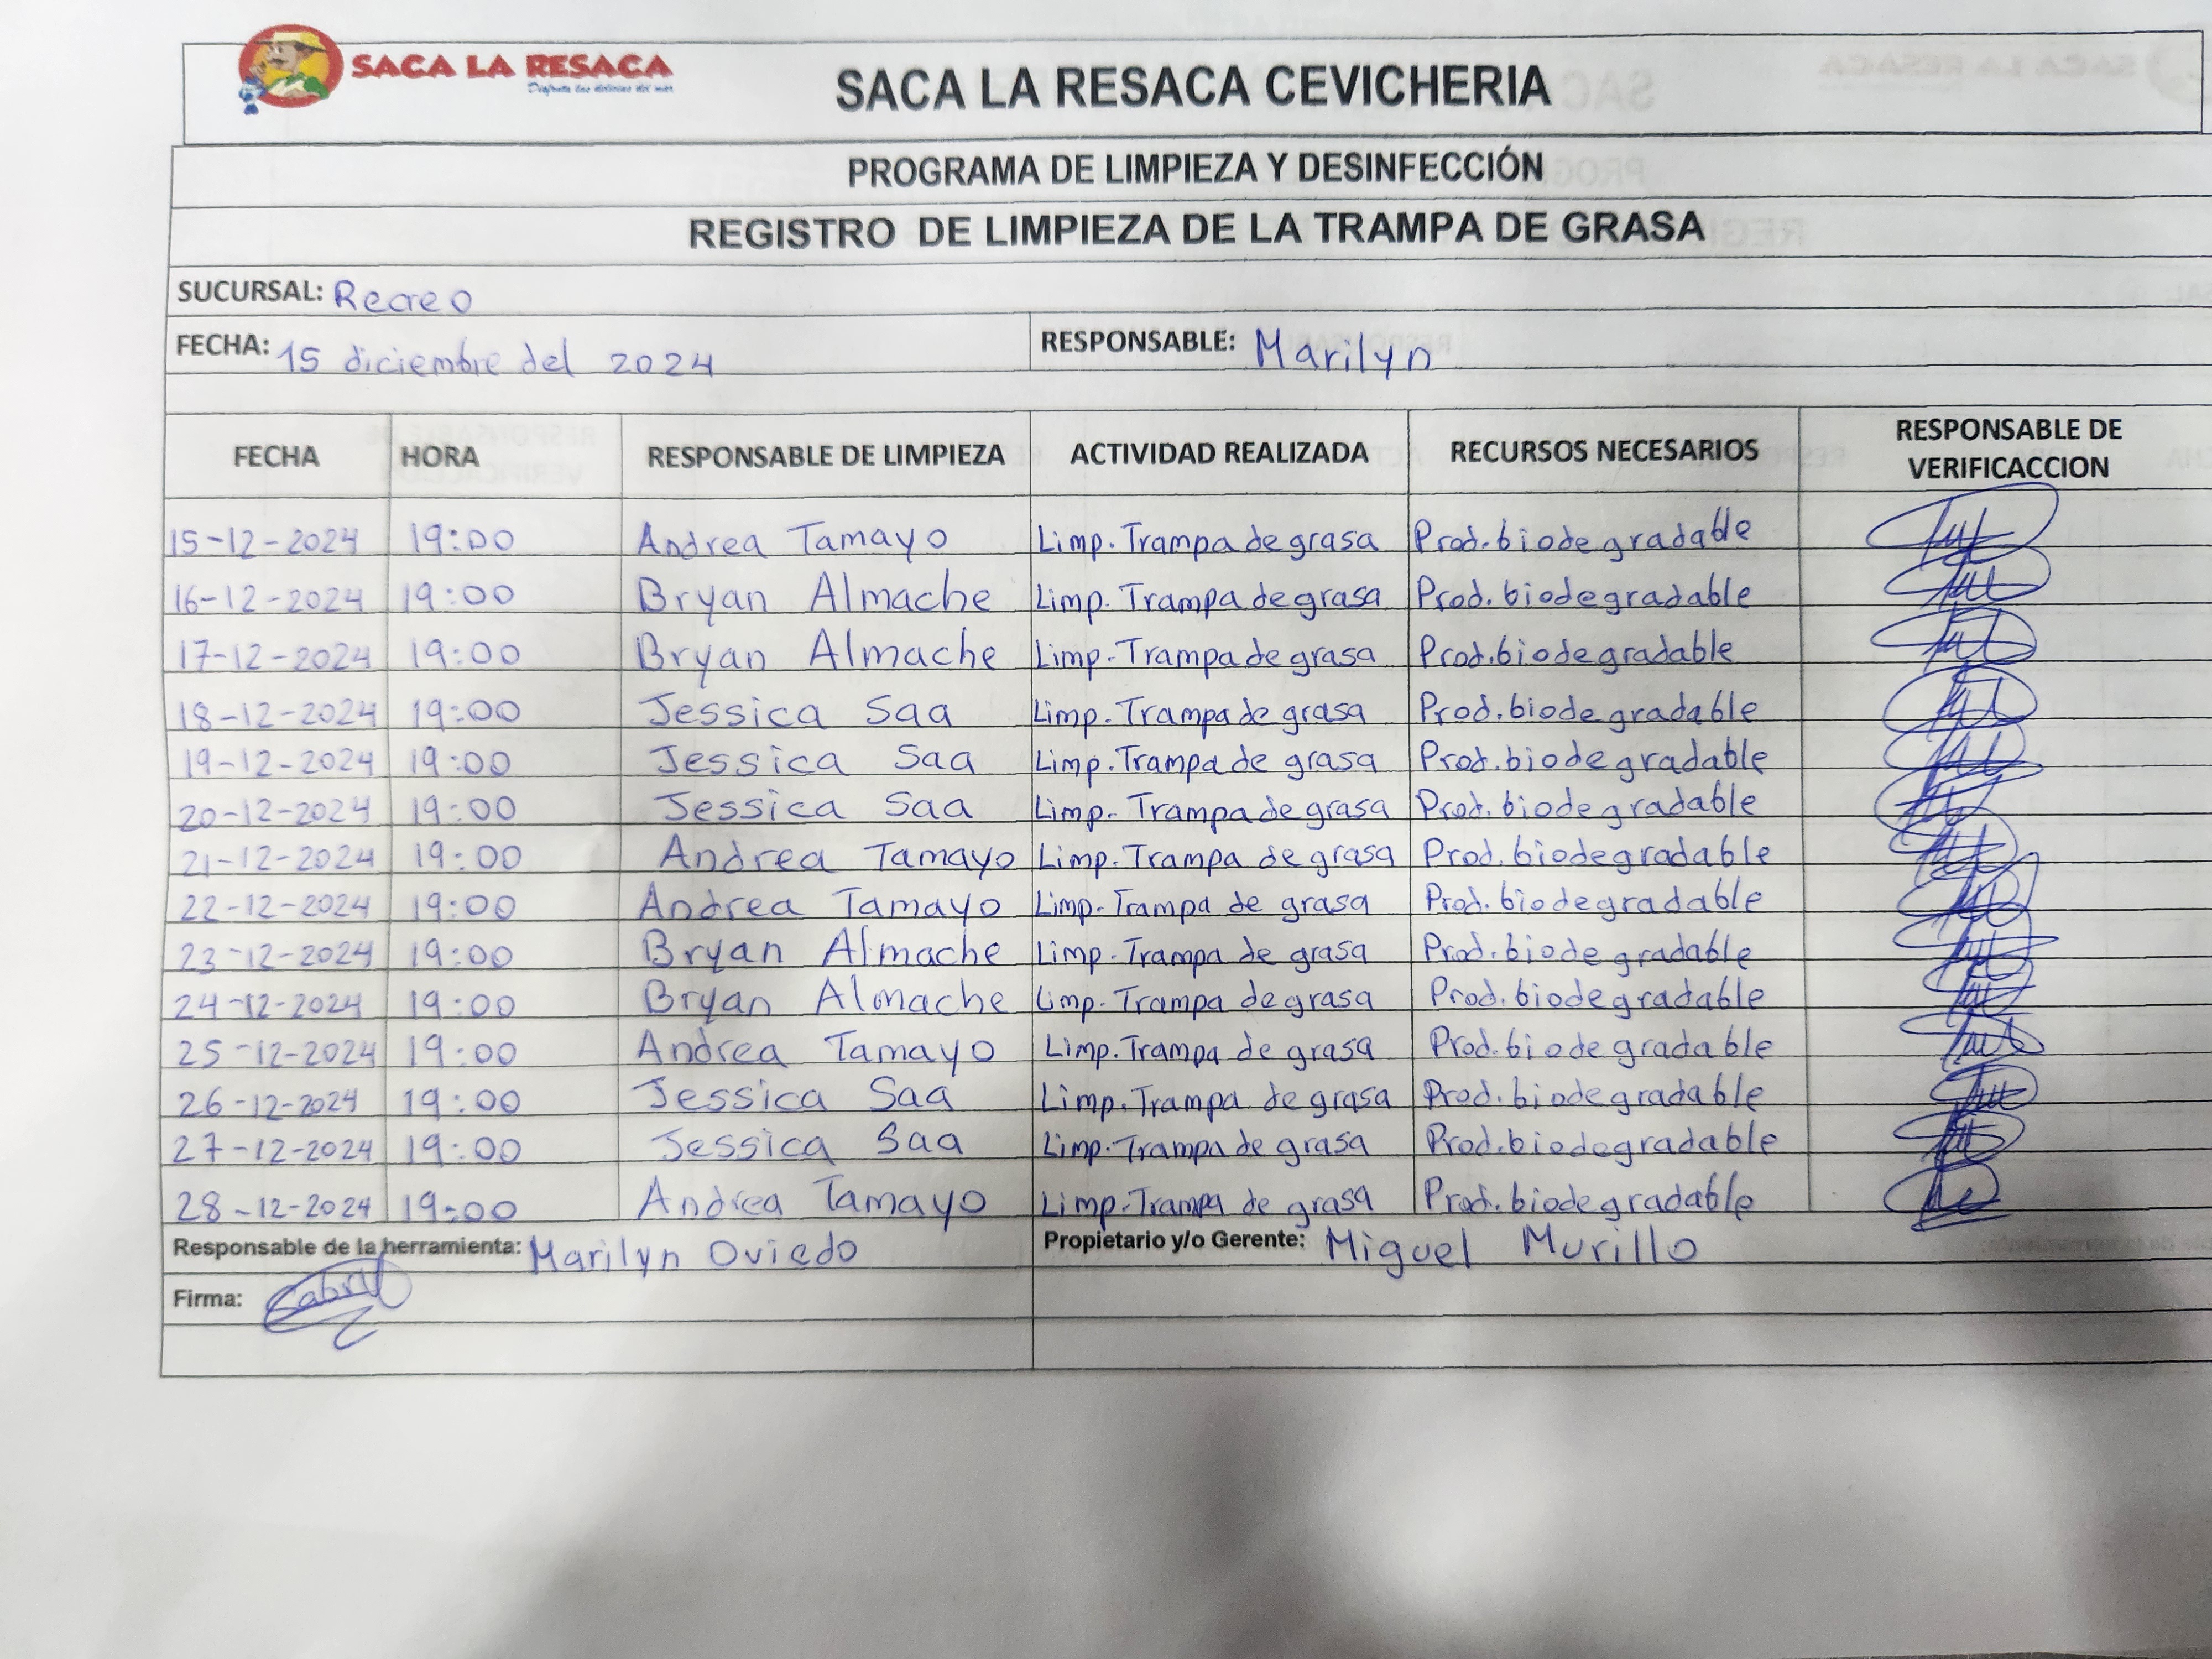 SACA LA RESACA
Disfruta las delicias del mar
SACA LA RESACA CEVICHERIA
PROGRAMA DE LIMPIEZA Y DESINFECCIÓN
REGISTRO DE LIMPIEZA DE LA TRAMPA DE GRASA
SUCURSAL: Recreo
FECHA: 15 diciembre del 2024 RESPONSABLE: Marilyn
FECHA HORA RESPONSABLE DE LIMPIEZA ACTIVIDAD REALIZADA RECURSOS NECESARIOS RESPONSABLE DE VERIFICACCION
15-12-2024 19:00 Andrea Tamayo Limp. Trampa de grasa Prod. biodegradable
16-12-2024 19:00 Bryan Almache Limp. Trampa de grasa Prod. biodegradable
17-12-2024 19:00 Bryan Almache Limp. Trampa de grasa Prod. biodegradable
18-12-2024 19:00 Jessica Saa Limp. Trampa de grasa Prod. biodegradable
19-12-2024 19:00 Jessica Saa Limp. Trampa de grasa Prod. biodegradable
20-12-2024 19:00 Jessica Saa Limp. Trampa de grasa Prod. biodegradable
21-12-2024 19:00 Andrea Tamayo Limp. Trampa de grasa Prod. biodegradable
22-12-2024 19:00 Andrea Tamayo Limp. Trampa de grasa Prod. biodegradable
23-12-2024 19:00 Bryan Almache Limp. Trampa de grasa Prod. biodegradable
24-12-2024 19:00 Bryan Almache Limp. Trampa de grasa Prod. biodegradable
25-12-2024 19:00 Andrea Tamayo Limp. Trampa de grasa Prod. biodegradable
26-12-2024 19:00 Jessica Saa Limp. Trampa de grasa Prod. biodegradable
27-12-2024 19:00 Jessica Saa Limp. Trampa de grasa Prod. biodegradable
28-12-2024 19:00 Andrea Tamayo Limp. Trampa de grasa Prod. biodegradable
Responsable de la herramienta: Marilyn Oviedo Propietario y/o Gerente: Miguel Murillo
Firma: